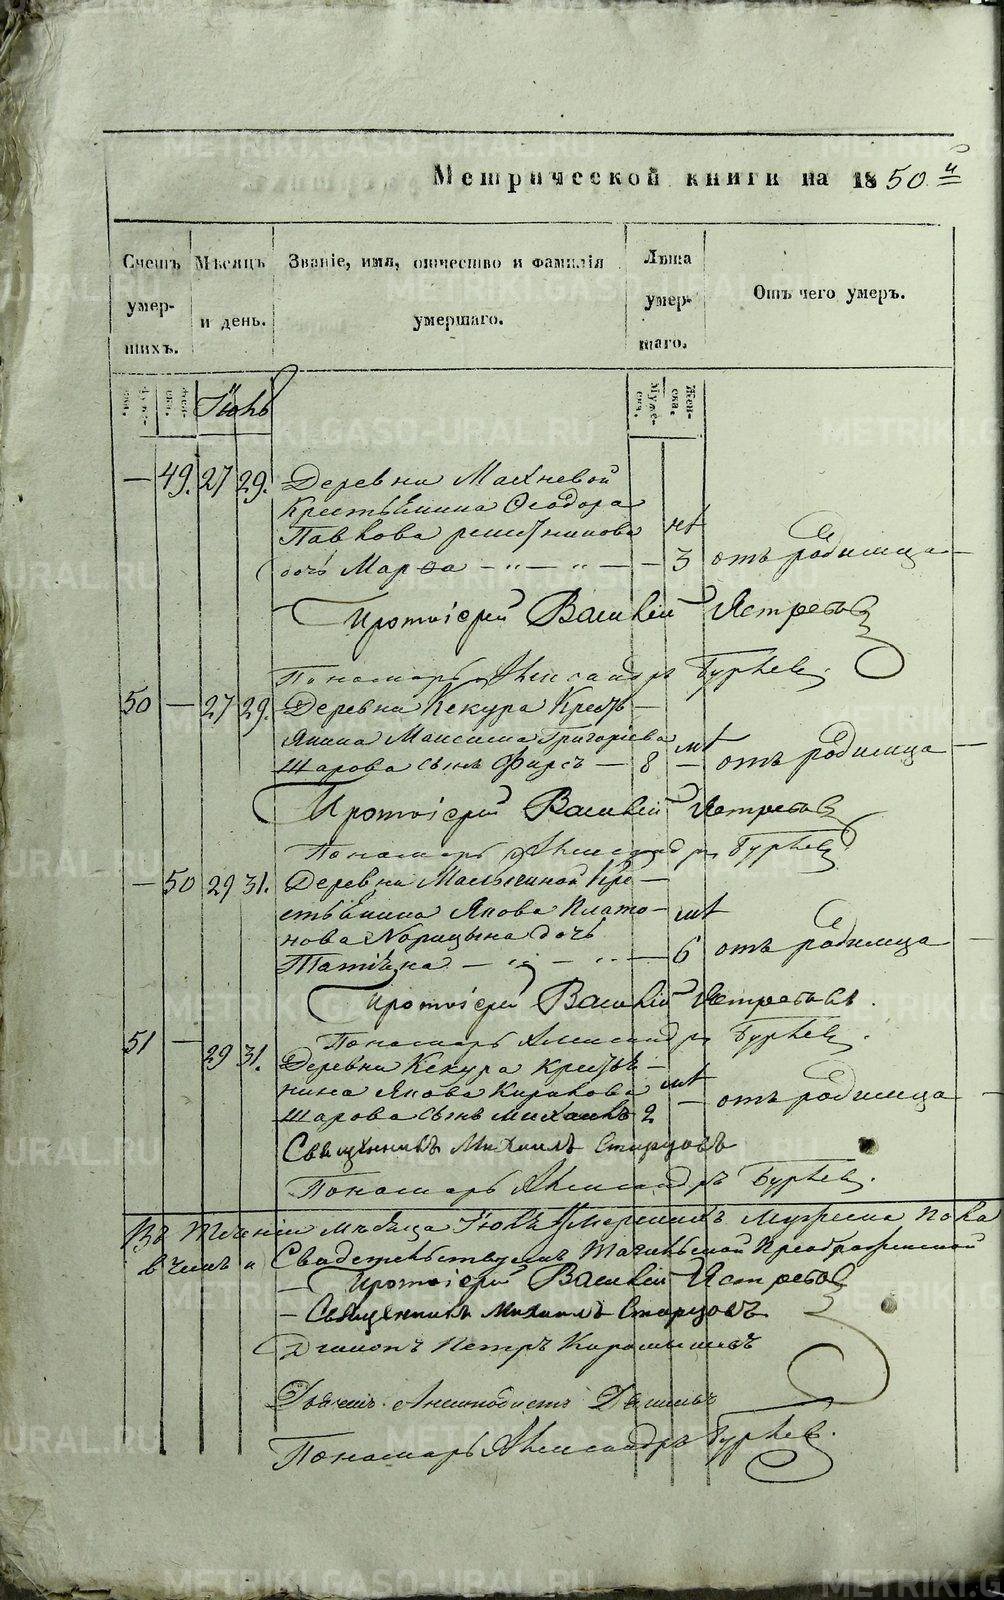 Метрической книги на 1850й
Счетъ умершихъ.
Мѣсяцъ и день.
Званіе, имя, отчество и фамилія умершаго.
Лѣта умершаго.
Отъ чего умеръ.
Мужеска.
Женска.
Іюль
Мужеска.
Женска.
— 49. 27 29. Деревни Махневой
Крестьянина Ѳеодора
Павлова решетникова лѣт
дочь Марѳа — " — " — — 3 отъ родимца —
Протоіерей Василій Ястребов
Пономарь Александръ Гурьев.
50 — 27 29. Деревни Кекура Кресть—
янина Максима Григорьева лѣт
Шарова сынъ Фирсъ — 8 — отъ родимца —
Протоіерей Василій Ястребов
Пономарь Александръ Гурьев.
— 50 29 31. Деревни Кре—
стьянина Якова Плато— лѣт
нова дочь
Татіяна — " — " — 6 отъ родимца —
Протоіерей Василій Ястребовъ.
Пономарь Александръ Гурьев.
51 — 29 31. Деревни Кекура крестья—
нина Якова лѣт
Шарова сынъ Михаилъ 2 — отъ родимца —
Священникъ Михаилъ Старцовъ
Пономарь Александръ Гурьев.
Въ теченіи мѣсяца Іюля умершихъ мужеска пола
в чемъ и Свидетельствуемъ Преображенской
— Протоіерей Василій Ястребов
— Священникъ Михаилъ Старцовъ
Діаконъ Петръ
Дьячекъ
Пономарь Александръ Гурьев.
METRIKI.GASO-URAL.RU